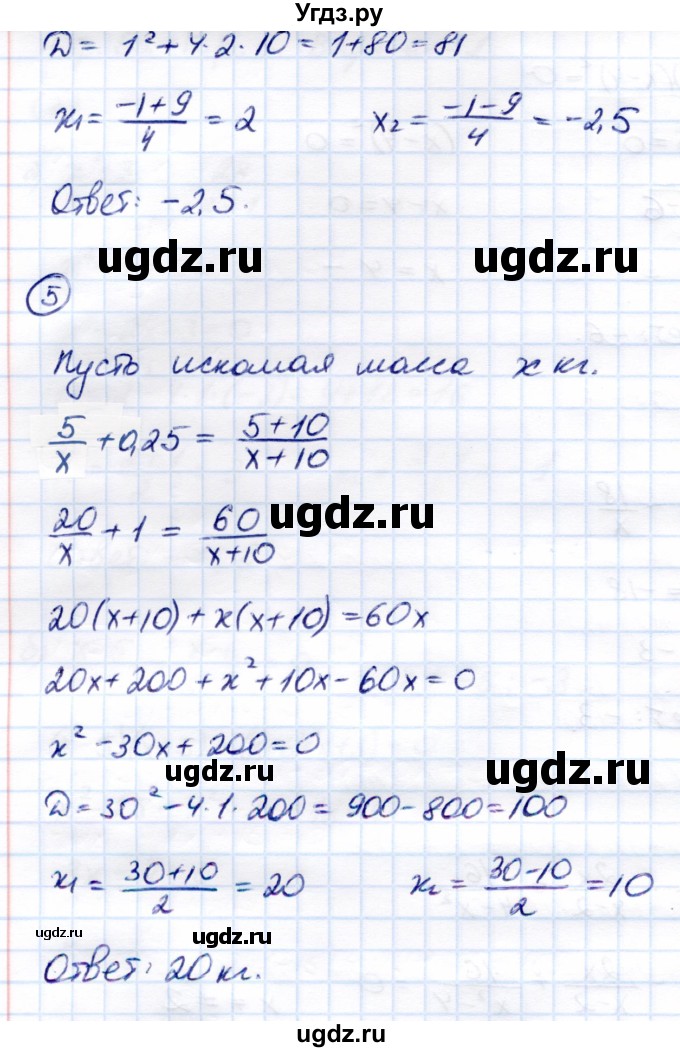 Угдз.ру
D = 1² + 4·2·10 = 1+80 = 81
x₁ = (-1+9)/4 = 2 x₂ = (-1-9)/4 = -2,5
Ответ: -2,5.
ugdz.ru ugdz.ru
5
Пусть искомая масса x кг.
5/x + 0,25 = (5+10)/(x+10)
20/x + 1 = 60/(x+10)
ugdz.ru
20(x+10) + x(x+10) = 60x
20x + 200 + x² + 10x - 60x = 0
x² - 30x + 200 = 0
ugdz.ru ugdz.ru
D = 30² - 4·1·200 = 900 - 800 = 100
x₁ = (30+10)/2 = 20 x₂ = (30-10)/2 = 10
ugdz.ru ugdz.ru
Ответ: 20 кг.
ugdz.ru